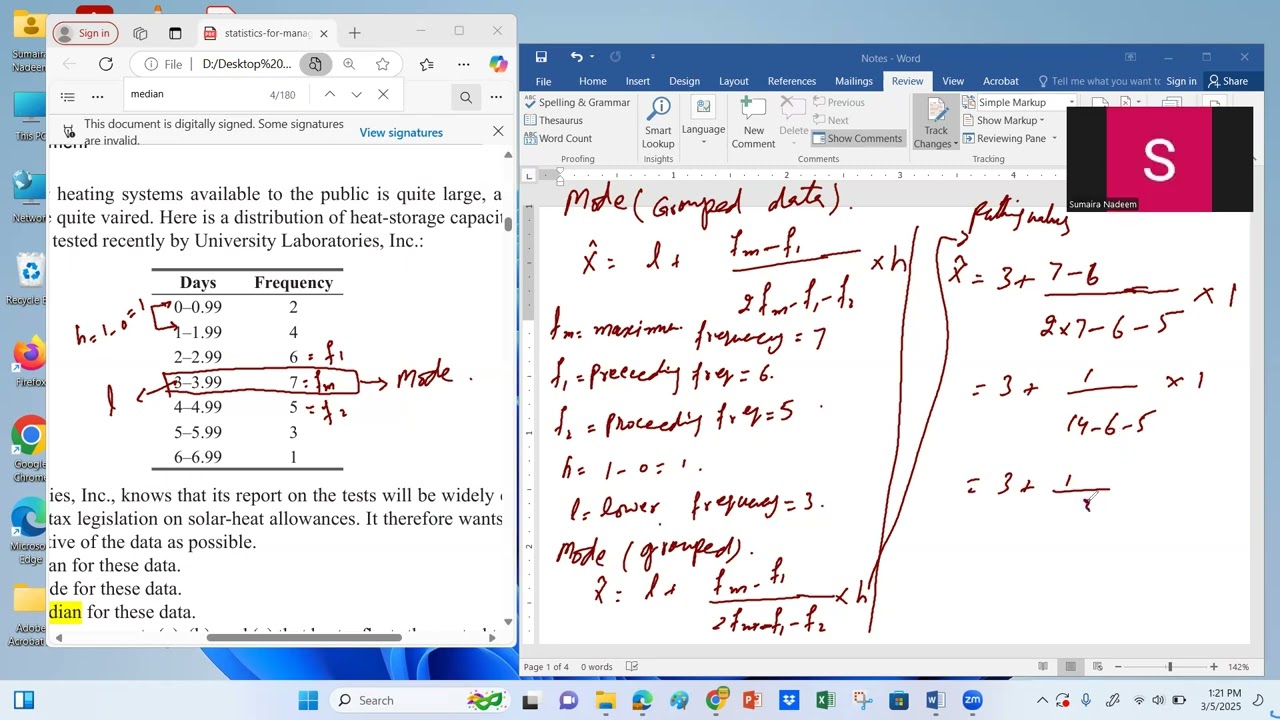 Sumaira Nadeem
This PC
Network
Recycle B
Firefox
Google Chrome
Microsoft Edge
Adobe Acrobat
Sign in
statistics-for-manag
File
D:/Desktop%20...
median
4/180
This document is digitally signed. Some signatures are invalid.
View signatures
heating systems available to the public is quite large, a
quite vaired. Here is a distribution of heat-storage capacit
tested recently by University Laboratories, Inc.:
Days Frequency
0–0.99 2
1–1.99 4
2–2.99 6 = f1
3–3.99 7 = fm → Mode.
4–4.99 5 = f2
5–5.99 3
6–6.99 1
h = 1 - 0 = 1
l
ies, Inc., knows that its report on the tests will be widely
tax legislation on solar-heat allowances. It therefore wants
tive of the data as possible.
an for these data.
de for these data.
dian for these data.
Notes - Word
File Home Insert Design Layout References Mailings Review View Acrobat Tell me what you want to Sign in Share
Spelling & Grammar
Thesaurus
Word Count
Proofing
Smart Lookup
Insights
Language
New Comment
Delete
Previous
Next
Show Comments
Comments
Track Changes
Simple Markup
Show Markup
Reviewing Pane
Tracking
S
Sumaira Nadeem
Mode (Grouped data).
X̂ = l + (fm - f1) / (2fm - f1 - f2) × h
fm = maximum frequency = 7
f1 = Preceeding freq = 6.
f2 = Proceeding freq = 5
h = 1 - 0 = 1.
l = lower frequency = 3.
Mode (grouped).
X̂ = l + (fm - f1) / (2fm - f1 - f2) × h
Putting values
X̂ = 3 + (7 - 6) / (2×7 - 6 - 5) × 1
= 3 + 1 / (14 - 6 - 5) × 1
= 3 + 1 /
Page 1 of 4 0 words
142%
Search
1:21 PM
3/5/2025